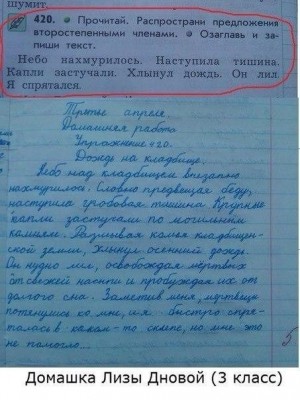 шумит.
420. • Прочитай. Распространи предложения
второстепенными членами. • Озаглавь и за-
пиши текст.
Небо нахмурилось. Наступила тишина.
Капли застучали. Хлынул дождь. Он лил.
Я спрятался.
Третье апреля.
Домашняя работа
Упражнение 420.
Дождь на кладбище.
Небо над кладбищем внезапно
нахмурилось. Словно предвещая беду,
наступила гробовая тишина. Крупные
капли застучали по могильным
камням. Размывая комья кладбищен-
ской земли, хлынул осенний дождь.
Он нудно лил, освобождая мёртвых
от свежей насыпи и пробуждая их от
долгого сна. Заметив меня, мертвецы
потянулись ко мне, и я быстро спря-
талась в каком-то склепе, но мне это
не помогло...
5
Домашка Лизы Дновой (3 класс)